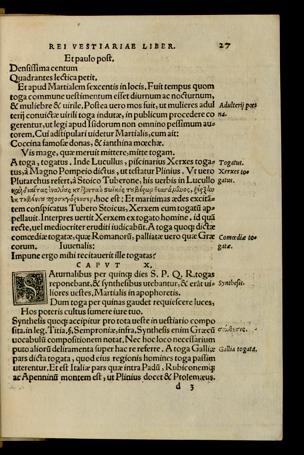 REI VESTIARIAE LIBER. 27
Et paulo post,
Densissima centum
Quadrantes lectica petit,
Et apud Martialem sexcentis in locis. Fuit tempus quom
toga commune uestimentum esset diurnum ac nocturnum,
& muliebre & uirile. Postea uero mos fuit, ut mulieres adul
terij conuictæ uirili toga indutæ, in publicum procedere co
gerentur, ut legi apud Isidorum non omnino pessimum au-
torem. Cui adstipulari uidetur Martialis, cum ait:
Coccina famosæ donas, & ianthina mœchæ.
Vis mage, quæ meruit mittere, mitte togam.
A toga, togatus. Inde Lucullus, piscinarius Xerxes toga-
tus, à Magno Pompeio dictus, ut testatur Plinius. Vt uero
Plutarchus refert, à Stoico Tuberone, his uerbis in Lucullo
hoc est: Et maritimas ædes excitã
tem conspicatus Tubero Stoicus, Xerxem eum togatũ ap-
pellauit. Interpres uertit Xerxem ex togato homine. id quã
recte, uel mediocriter eruditi iudicabũt. A toga quoq; dictæ
comœdiæ togatæ, quæ Romanorũ, palliatæ uero quæ Græ
corum. Iuuenalis:
Impune ergo mihi recitauerit ille togatas?
CAPVT X.
SAturnalibus per quinq; dies S. P. Q. R. togas
reponebant, & synthesibus utebantur, & erãt ui-
liores uestes, Martialis in apophoretis.
Dum toga per quinas gaudet requiescere luces,
Hos poteris cultus sumere iure tuo.
Synthesis quoq; accipitur pro tota ueste in uestiario compo
sita. in leg. Titia, §. Sempronia, infra, Synthesis enim Græcũ
uocabulũ compositionem notat. Nec hoc loco necessarium
puto aliorũ deliramenta super hac re referre. A toga Galliæ
pars dicta togata, quod eius regionis homines toga passim
uterentur. Et est Italiæ pars quæ intra Padũ, Rubiconemq;
ac Apenninũ montem est, ut Plinius docet & Ptolemæus.
d 3
Adulterij pœ
na.
Togatus.
Xerxes to-
gatus.
Comœdiæ to
gatæ.
Synthesis.
Gallia togata.